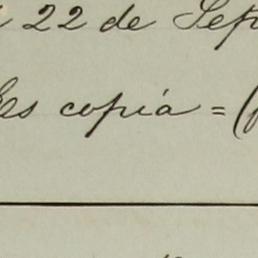 22 de Sep
Es copia = (